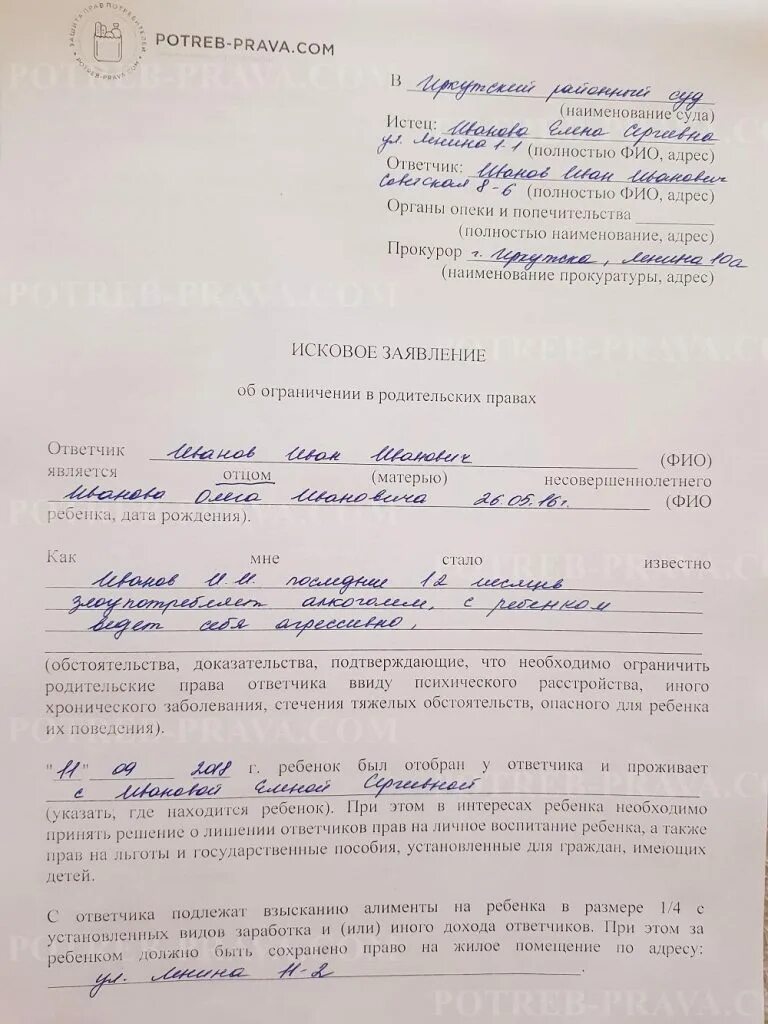 ЗАЩИТА ПРАВ ПОТРЕБИТЕЛЕЙ
POTREB-PRAVA.COM
POTREB-PRAVA.COM
В Иркутский районный суд
(наименование суда)
Истец: Иванова Елена Сергеевна
ул. Ленина 1-1 (полностью ФИО, адрес)
Ответчик: Иванов Иван Иванович
Советская 8-6 (полностью ФИО, адрес)
Органы опеки и попечительства
(полностью наименование, адрес)
Прокурор г. Иркутска, Ленина 10а
(наименование прокуратуры, адрес)
ИСКОВОЕ ЗАЯВЛЕНИЕ
об ограничении в родительских правах
Ответчик Иванов Иван Иванович (ФИО)
является отцом (матерью) несовершеннолетнего
Иванова Олега Ивановича 26.05.16г. (ФИО
ребенка, дата рождения).
Как мне стало известно
Иванов И.И. последние 12 месяцев
злоупотребляет алкоголем, с ребенком
ведет себя агрессивно,
(обстоятельства, доказательства, подтверждающие, что необходимо ограничить
родительские права ответчика ввиду психического расстройства, иного
хронического заболевания, стечения тяжелых обстоятельств, опасного для ребенка
их поведения).
"11" 09 2018 г. ребенок был отобран у ответчика и проживает
с Ивановой Еленой Сергеевной
(указать, где находится ребенок). При этом в интересах ребенка необходимо
принять решение о лишении ответчиков прав на личное воспитание ребенка, а также
прав на льготы и государственные пособия, установленные для граждан, имеющих
детей.
С ответчика подлежат взысканию алименты на ребенка в размере 1/4 с
установленных видов заработка и (или) иного дохода ответчиков. При этом за
ребенком должно быть сохранено право на жилое помещение по адресу:
ул. Ленина 11-2
POTREB-PRAVA.COM